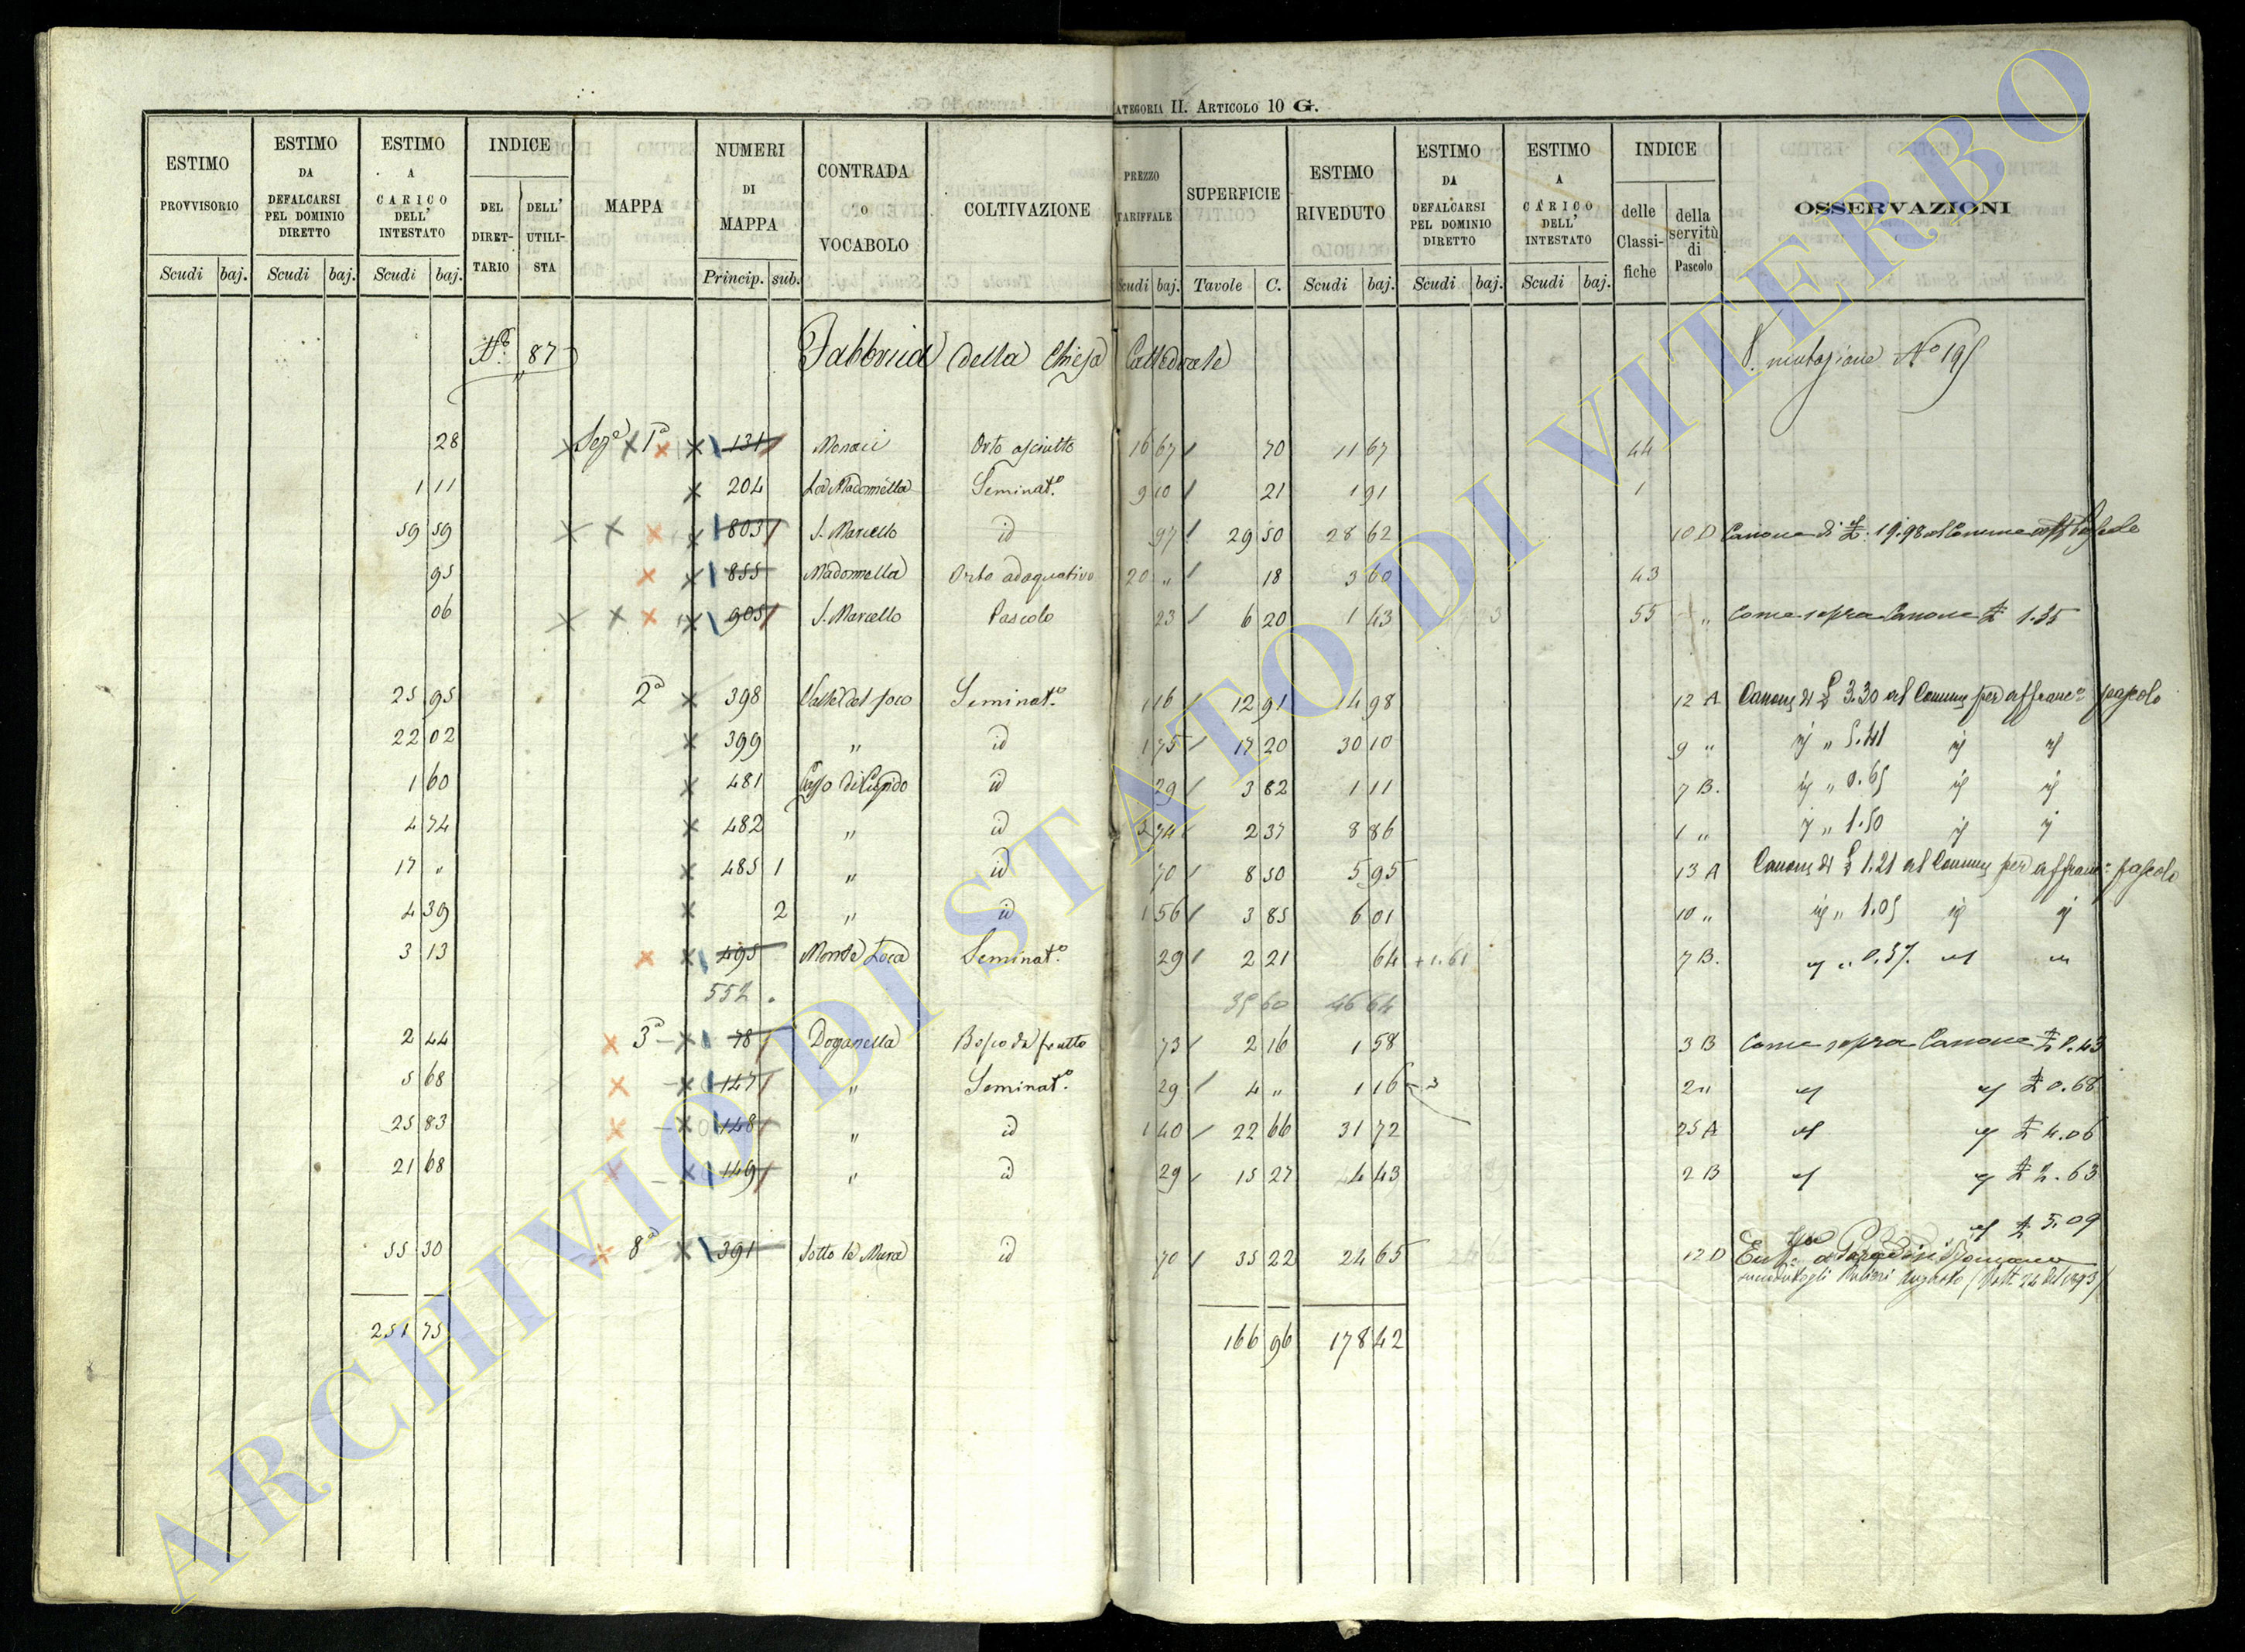 ATEGORIA II. ARTICOLO 10 G.
ESTIMO PROVVISORIO Scudi baj. ESTIMO DA DEFALCARSI PEL DOMINIO DIRETTO Scudi baj. ESTIMO A CARICO DELL' INTESTATO Scudi baj. INDICE DEL DIRET-TARIO DELL' UTILI-STA MAPPA NUMERI DI MAPPA Princip. sub. CONTRADA o VOCABOLO COLTIVAZIONE PREZZO TARIFFALE Scudi baj. SUPERFICIE Tavole C. ESTIMO RIVEDUTO Scudi baj. ESTIMO DA DEFALCARSI PEL DOMINIO DIRETTO Scudi baj. ESTIMO A CARICO DELL' INTESTATO Scudi baj. INDICE delle Classi-fiche della servitù di Pascolo OSSERVAZIONI
N.° 87 Fabbrica della Chiesa Cattedrale V. mutazione N° 195
28 Sez.e 1a 131 Monaci Orto asciutto 16 67 70 11 67 44
1 11 204 La Madonnella Seminat.o 9 10 21 1 91 1
59 59 803 S. Marcello id 97 29 50 28 62 10 D Canone di £. 19.98 al Comune
95 855 Madonnella Orto adaquativo 20 " 18 3 60 43
06 905 S. Marcello Pascolo 23 6 20 1 43 55 " Come sopra Canone £ 1.35
25 95 2a 398 Valle del foco Seminat.o 1 16 12 91 14 98 12 A Canone di £ 3.30 al Comune per affranc.e pascolo
22 02 399 " id 1 75 17 20 30 10 9 " id " 5.41 id id
1 60 481 id 29 3 82 1 11 7 B. id " 0.65 id id
4 74 482 " id 3 74 2 37 8 86 1 " id " 1.50 id id
17 " 485 1 " id 70 8 50 5 95 13 A Canone di £ 1.21 al Comune per affranc.e pascolo
4 39 2 " id 1 56 3 85 6 01 10 " id " 1.05 id id
3 13 495 Seminat.o 29 2 21 64 + 1.61 7 B. id " 0.37. id id
552 . 35 60 46 64
2 44 3a 78 Doganella Bosco da frutto 73 2 16 1 58 3 B Come sopra Canone £ 0.43
5 68 147 " Seminat.o 29 4 " 1 16 2 " id id £ 0.68
25 83 148 " id 1 40 22 66 31 72 25 A id id £ 4.06
21 68 149 " id 29 15 27 4 43 2 B id id £ 2.63
id £ 5.09
55 30 8a 391 Sotto le Mura id 70 35 22 24 65 12 D
251 75 166 96 178 42
ARCHIVIO DI STATO DI VITERBO